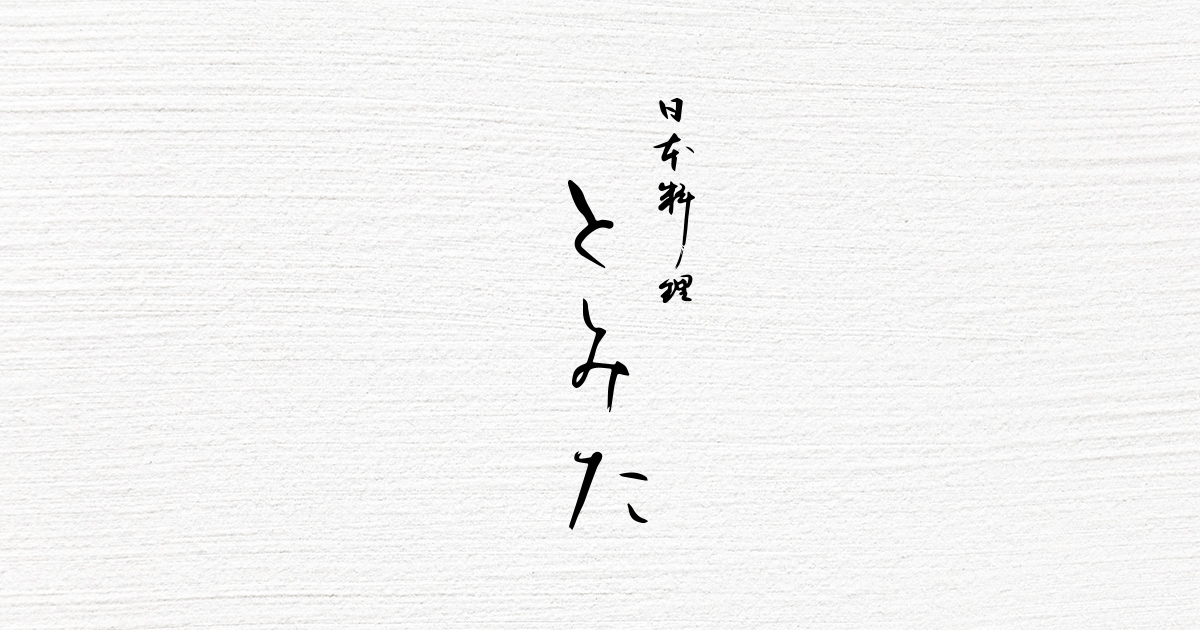 日本料理
とみた